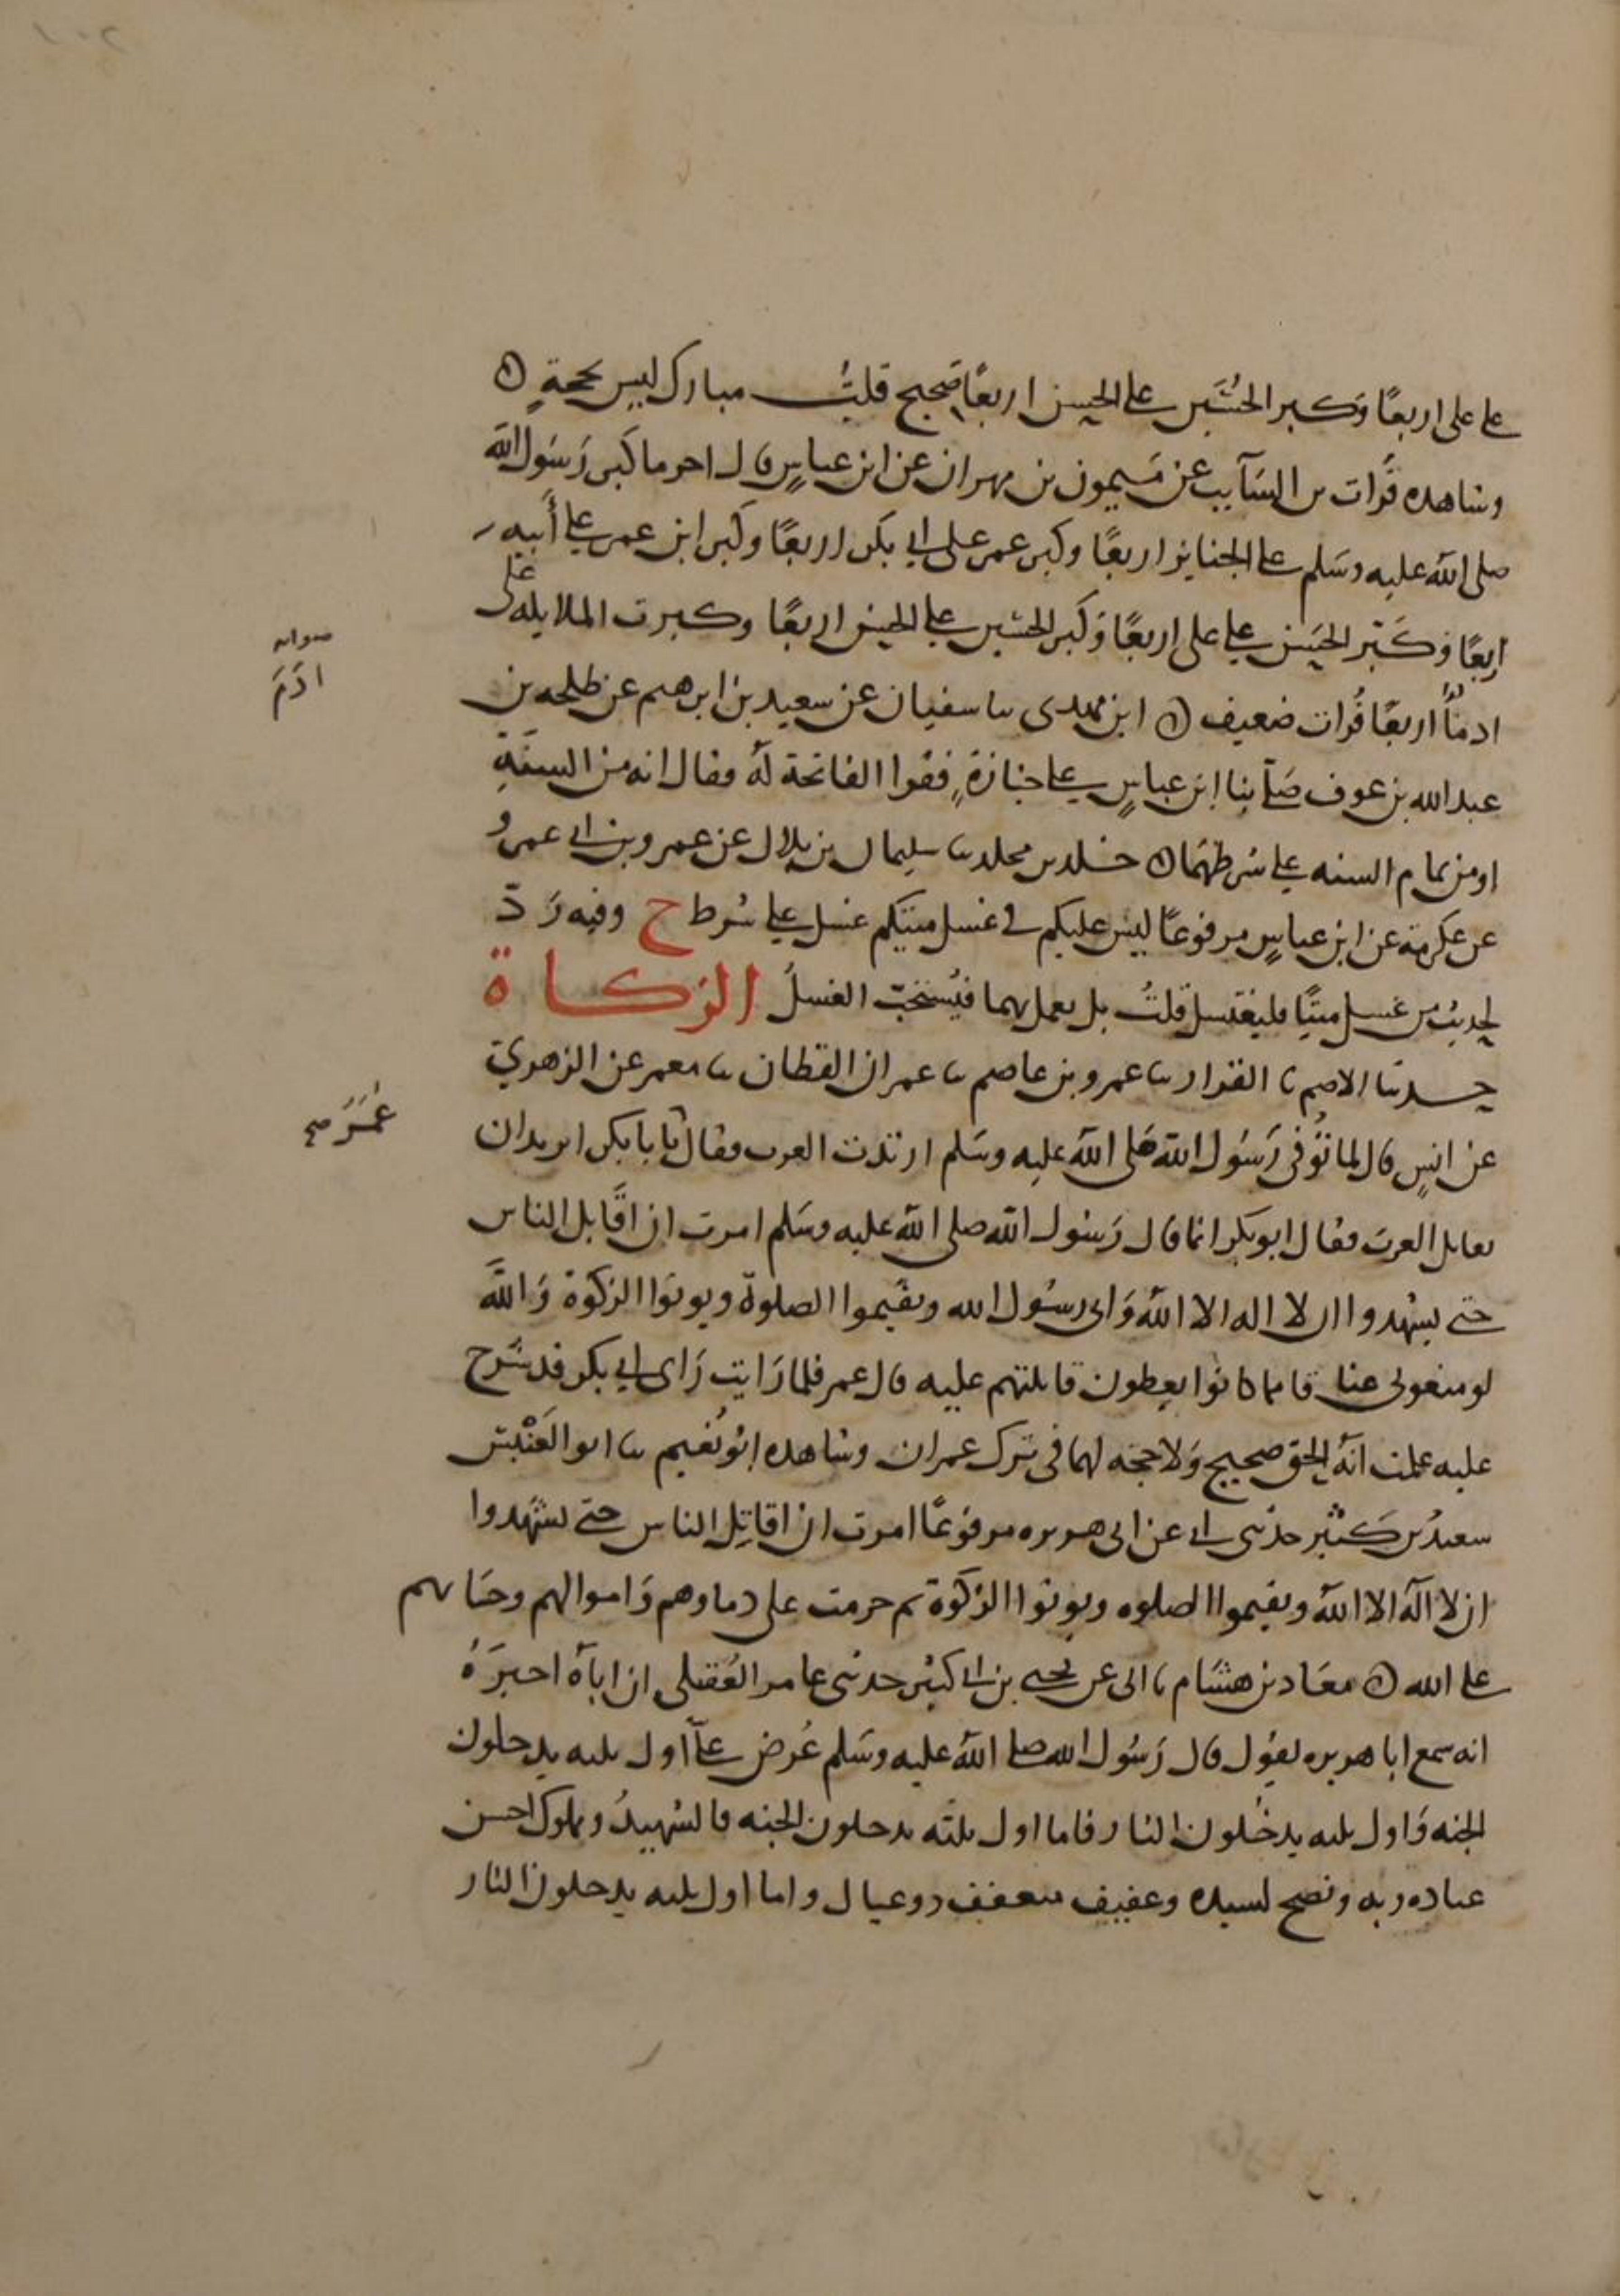 على علي اربعًا وكبر الحُسَين على الحسن اربعًا صحيح قلتُ مبارك ليس بحجةٍ ۞
وشاهده فُرات بن السَّايب عن مَيمون بن مهران عن ابن عباسٍ قال اخر ما كبر رَسُول الله
صلى الله عليه وسَلم على الجنايز اربعًا وكبر عمر على ابي بكر اربعًا وكبر ابن عمر على أبيه
اربعًا وَكَبّر الحَسَن على علي اربعًا وَكَبر الحسَين على الحسَن اربعًا وكبرت الملايكه على
ادمًا اربعًا فُرات ضعيف ۞ ابن مهدى ثنا سفيان عن سعيد بن ابرهيم عن طلحه بن
عبد الله بن عوف صَلّى بنا ابن عباسٍ على جنازةٍ فقرا الفاتحة لهُ فقال انه من السنةِ
او من تمام السنه على شرطهمَا ۞ خلد بن مخلد ثنا سليمان بن بلال عن عمرو بن ابي عمرو
عن عكرمة عن ابن عباسٍ مرفوعًا ليس عليكم في غسل ميتكم غسل على شرط خ وفيه رَدّ
لحديث من غسل ميتًا فليغتسل قلتُ بل يعمل بهما فيُستحبّ الغسلُ الزكاة
حدثنا الاصم ثنا القزاز ثنا عمرو بن عاصم ثنا عمران القطان ثنا معمر عن الزهري
عن انسٍ قال لما تُوُفى رَسُول الله صَلى الله عليه وسَلم ارتدت العرب فقال يابا بكر اتريد ان
تقاتل العربَ فقال ابو بكر انما قال رَسُول الله صلى الله عليه وسَلم امرت ان اقَاتل الناس
حتى يشهدوا ان لا اله الا اللهُ وَانى رسُول الله ويقيموا الصلوة ويوتوا الزكوة وَالله
لو منعونى عناقا مما كانوا يعطون قاتلتهم عليه قال عمر فلما رَايت رَاى ابي بكر قد شرح
عليه علمت انهُ الحق صحيح وَلا حجه لهما فى ترك عمران وشاهده ابُو نُعَيم ثنا ابو العَنْبَس
سعيدُ بن كَثير حدثنى ابي عن ابى هريره مرفوعًا امرت ان اقاتِل الناس حتى يشهدوا
ان لا اله الا اللهُ ويقيموا الصلوه ويوتوا الزكوة ثم حرمت على دماوهم وَاموالهم وحسَابهم
على الله ۞ معَاذ بن هشَام ثنا ابى عن يحيى بن ابي كثير حدثنى عامر العُقيلى ان اباهُ اخبرَهُ
انه سمع ابا هريره يقول قال رَسُول الله صلى اللهُ عليه وسَلم عُرض علىّ اول ثلثه يدخلون
الجنه وَاول ثلثه يدخُلون النار فاما اول ثلثه يدخلون الجنه فالشهيدُ ومملوك احسن
عباده ربه ونصح لسيده وعفيف متعفف ذو عيال واما اول ثلثه يدخلون النار
صوابه
ادَمَ
عُمَرَ صح